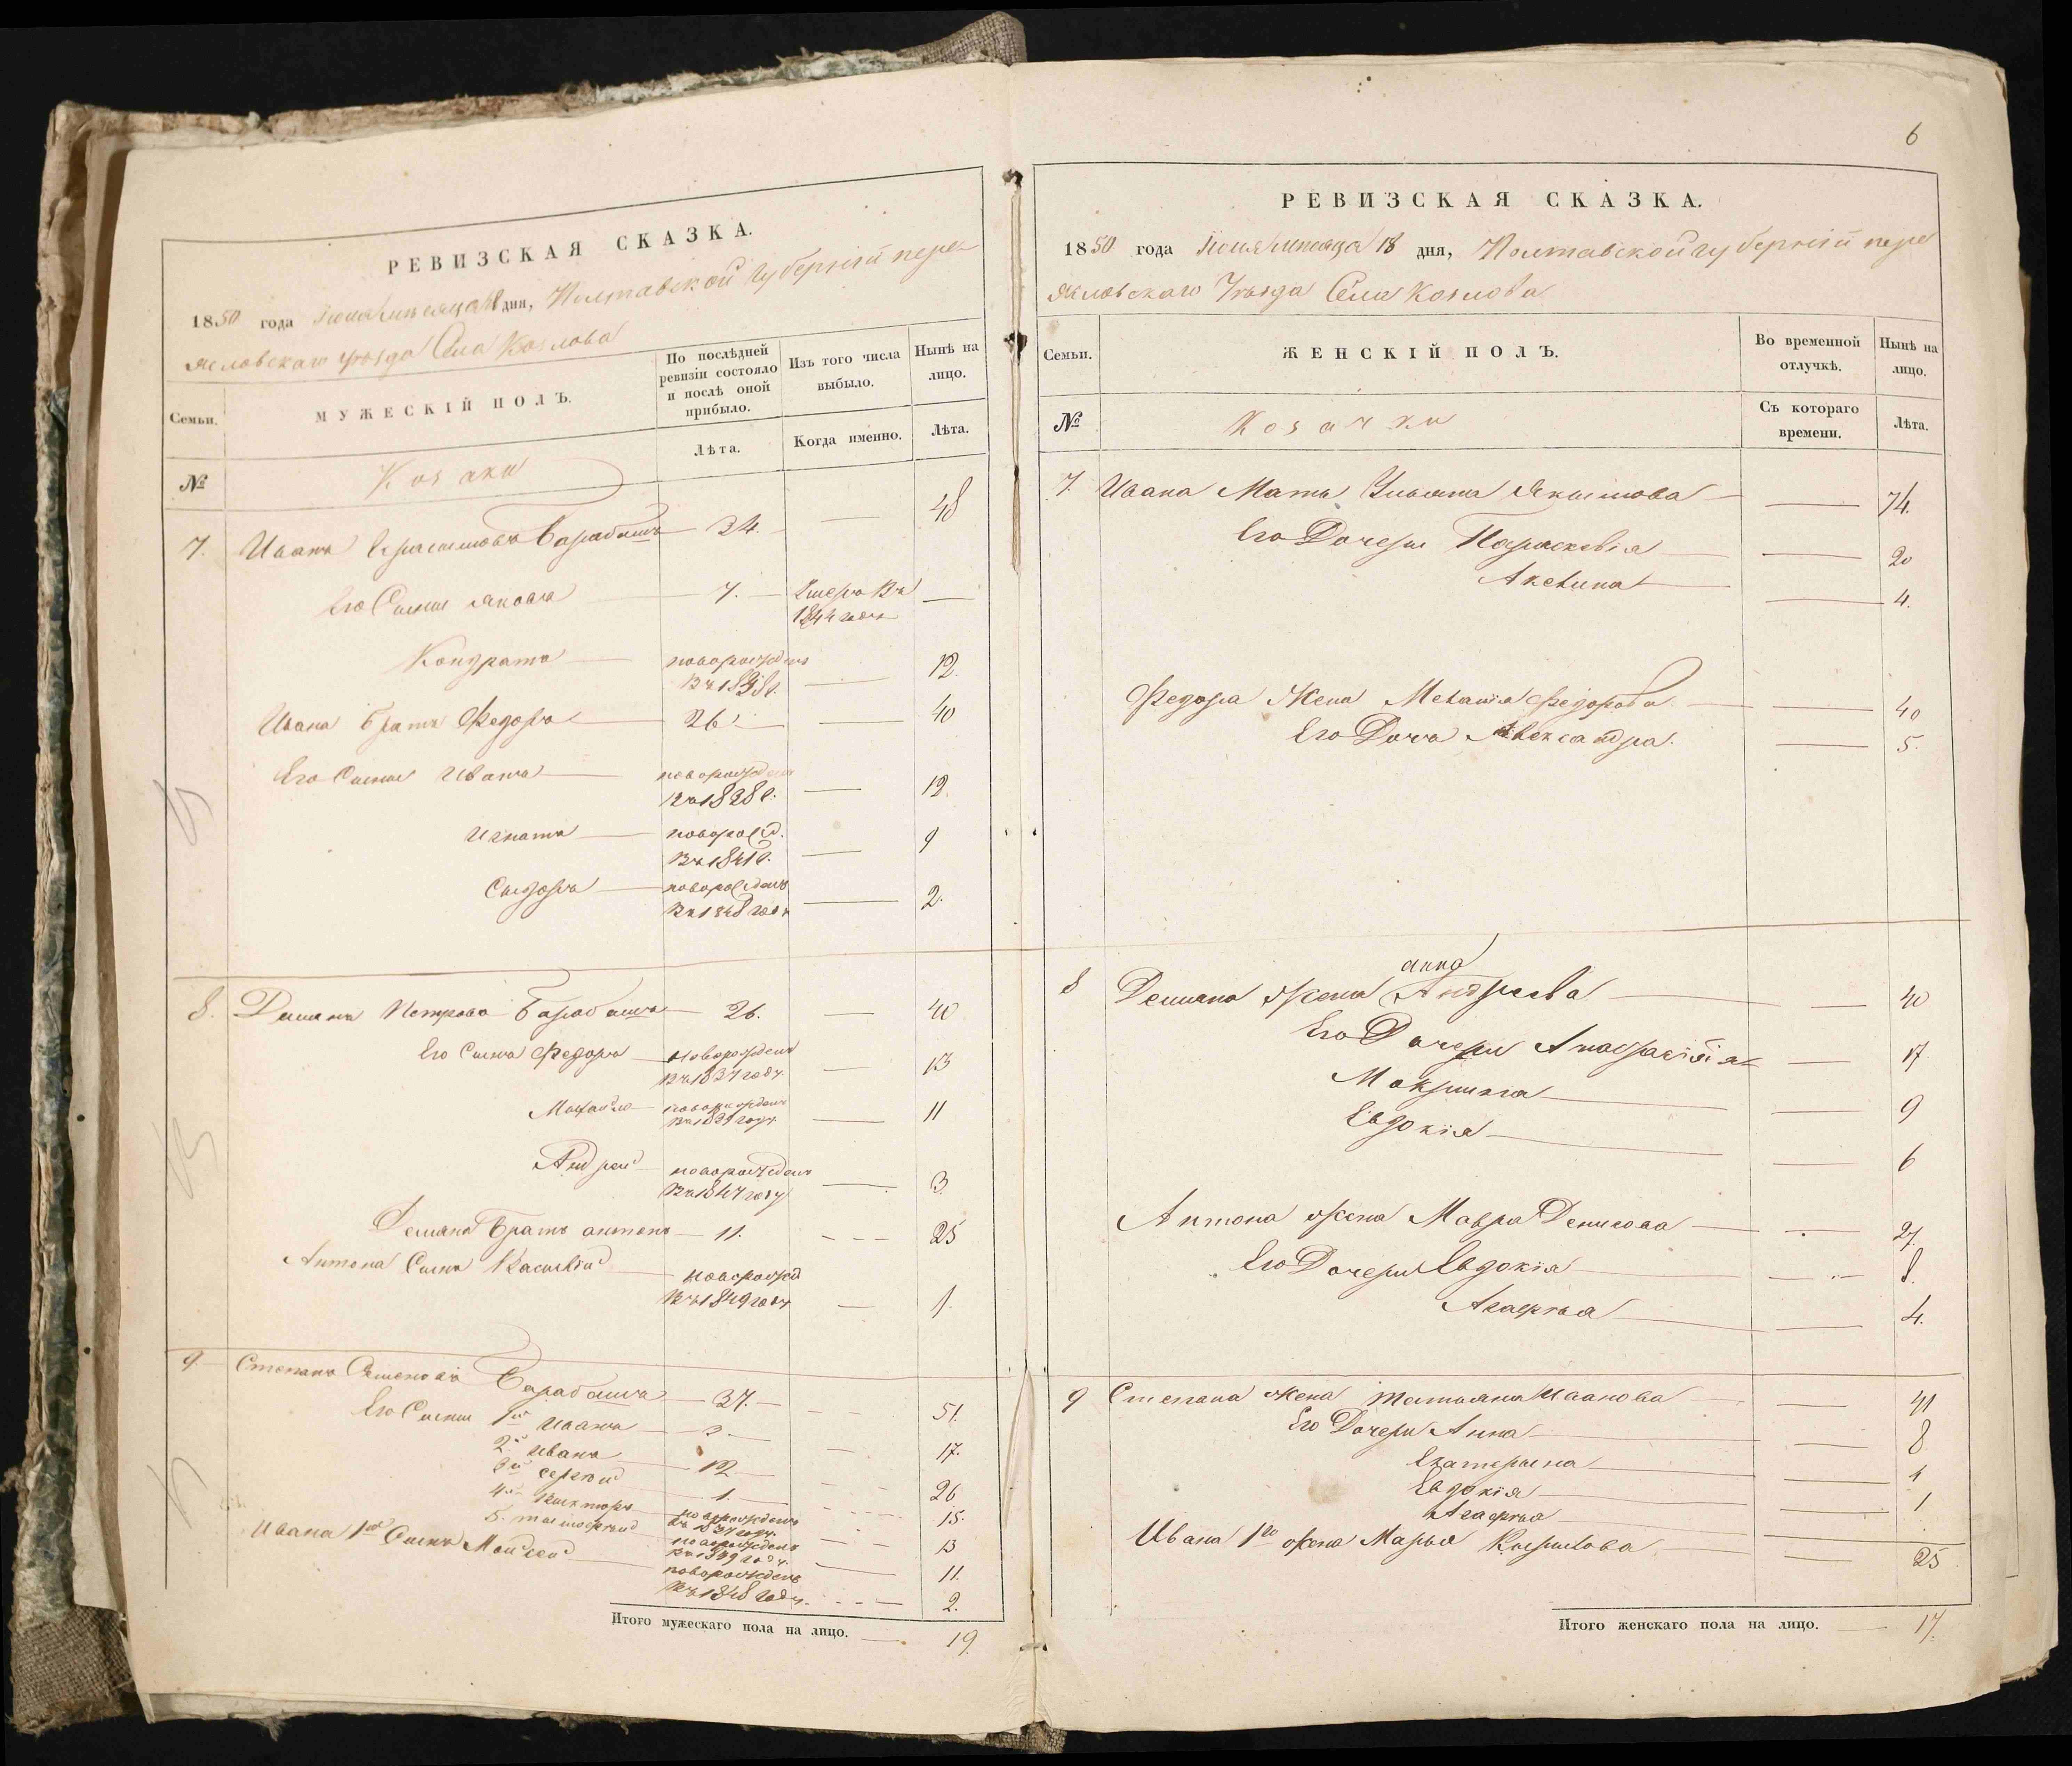 РЕВИЗСКАЯ СКАЗКА.
1850 года Июня месяца 18 дня, Полтавской губерніи пере
яславскаго уѣзда Села Козлова
Семьи.
МУЖЕСКІЙ ПОЛЪ.
По послѣдней ревизіи состояло и послѣ оной прибыло.
Изъ того числа выбыло.
Нынѣ на лицо.
№
Козаки
Лѣта.
Когда именно.
Лѣта.
7. Иванъ Барабашъ 34. 48
Его Сыны Яковъ 7. Умеръ въ 1844 году
Кондратъ новорожденъ въ 1838 г. 12.
Ивана Братъ Федоръ 26 40
Его Сыны Иванъ новорожден въ 1828 г. 12.
Игнатъ новорожд. въ 1841 г. 9
Сидоръ новорожденъ въ 1848 году 2.
8. Демянъ Петровъ Барабашъ 26. 40
Его Сынъ Федоръ новорожденъ въ 1837 году 13
Михайло новорожденъ въ 1839 году 11
Андрей новорожденъ въ 1847 году 3
Демяна Братъ антонъ 11. 25
Антона Сынъ Василій новорожд въ 1849 году 1.
9. Степанъ Семеновъ Барабашъ 37. 51.
Его Сыны 1й Иванъ 3. 17.
2й Иванъ 12 26
3й Сергѣй 1. 15.
4й Викторъ новорожденъ въ 1837 году. 13
5. тимофей новорожденъ въ 1839 году. 11.
Ивана 1го Сынъ Мойсей новорожденъ въ 1848 году. 2.
Итого мужескаго пола на лицо. 19.
6
РЕВИЗСКАЯ СКАЗКА.
1850 года Июня месяца 18 дня, Полтавской губерніи пере
яславскаго Уѣзда Села Козлова
Семьи.
ЖЕНСКІЙ ПОЛЪ.
Во временной отлучкѣ.
Нынѣ на лицо.
№
Козачки
Съ котораго времени.
Лѣта.
7. Ивана Мать Ульяна Якимова 74.
Его Дочери Параскевія 20
Акелина 4.
Федора Жена Меланія Федорова 40
Его Дочь Александра. 5.
8 Демяна жена анна Андреева 40
Его Дочери Анастасія 17
Мокрина 9
Евдокія 6
Антона жена Мавра Денисова 27.
Его Дочери Евдокія 8.
Агафья 4.
9 Степана жена татьяна Иванова 41
Его Дочери Анна 8
Екатерина 4
Евдокія 1
Агафья
Ивана 1го жена Марья Кирилова 25
Итого женскаго пола на лицо. 17.